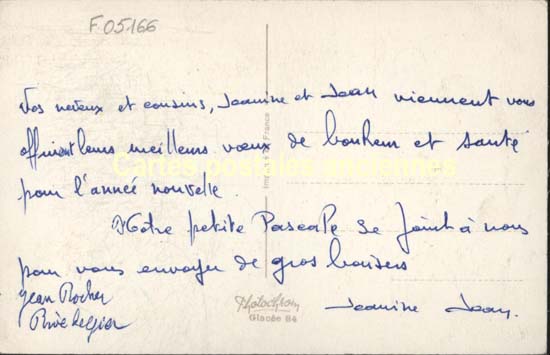 F05166
Vos neveux et cousins, Jeanine et Jean viennent vous
offrir leurs meilleurs vœux de bonheur et santé
Cartes postales anciennes
pour l'année nouvelle.
Notre petite Pascale se joint à nous
pour vous envoyer de gros baisers
Jean Rocher
Jeanine Jean.
Photochrom
Glacée 84
France